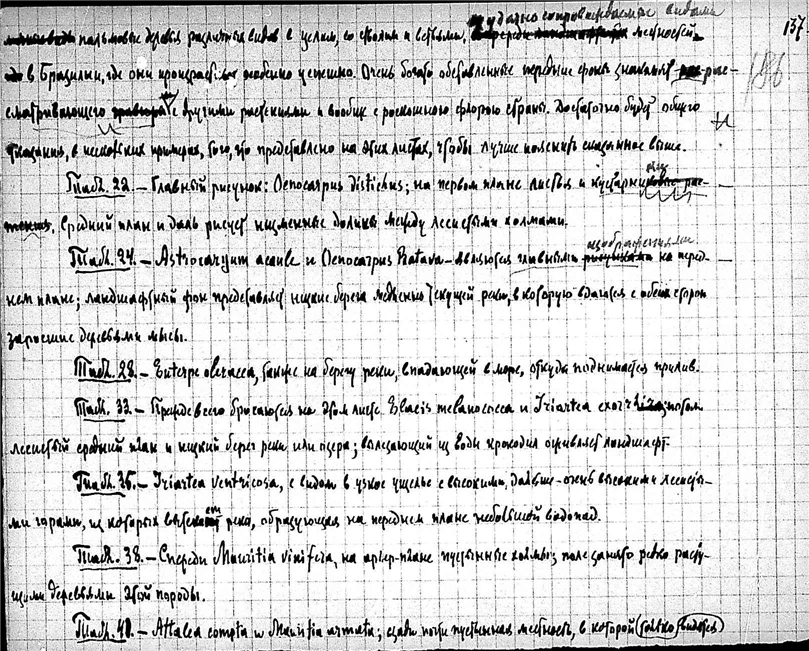 и удачно сопровождаемые видами
137
пальмовые деревья различных видов в целом, со стволом и ветвями, местностей
186
в Бразилии, где они произрастают особенно успешно. Очень богато обставленные передние фоны знакомят рас-
сматривающего с другими растениями и вообще с роскошною флорою страны. Достаточно будет общего
указания, в нескольких примерах, того, что представлено на этих листах, чтобы лучше пояснить сказанное выше.
Табл. 22. – Главный рисунок: Oenocarpus distichus; на первом плане листья и кустарниковые рас-
тения. Средний план и даль рисует низменные долины между лесистыми холмами.
изображениями
Табл. 24. – Astrocaryum acaule и Oenocarpus Batava – являются главными рисунками на перед-
нем плане; ландшафтный фон представляет низкие берега медленно текущей реки, в которую вдаются с обеих сторон
заросшие деревьями мысы.
Табл. 28. – Euterpe oleracea, также на берегу реки, впадающей в море, откуда поднимается прилив.
Табл. 33. – Прежде всего бросаются на этом листе Elaeis melanococca и Iriartea потом
лесистый средний план и низкий берег реки или озера; вылезающий из воды крокодил оживляет ландшафт.
Табл. 35. – Iriartea ventricosa, с видом в узкое ущелье с высокими, дальше – очень высокими лесисты-
ми горами, из которых вытекает река, образующая на переднем плане небольшой водопад.
Табл. 38. – Спереди Mauritia vinifera, на арьер-плане пустынные холмы; поле занято редко расту-
щими деревьями этой породы.
Табл. 40. – Attalea compta и Mauritia armata; сзади почти пустынная местность, в которой (только видится)